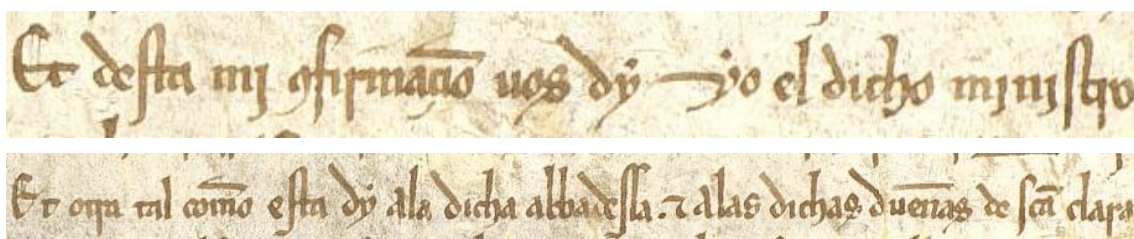 Et desta mi ꝯfirmaçio͞ uos dy yo el dicho ministro
Et otra tal com̄o esta dy ala dicha abbadessa. ⁊ alas dichas dueñas de sc̄a clara